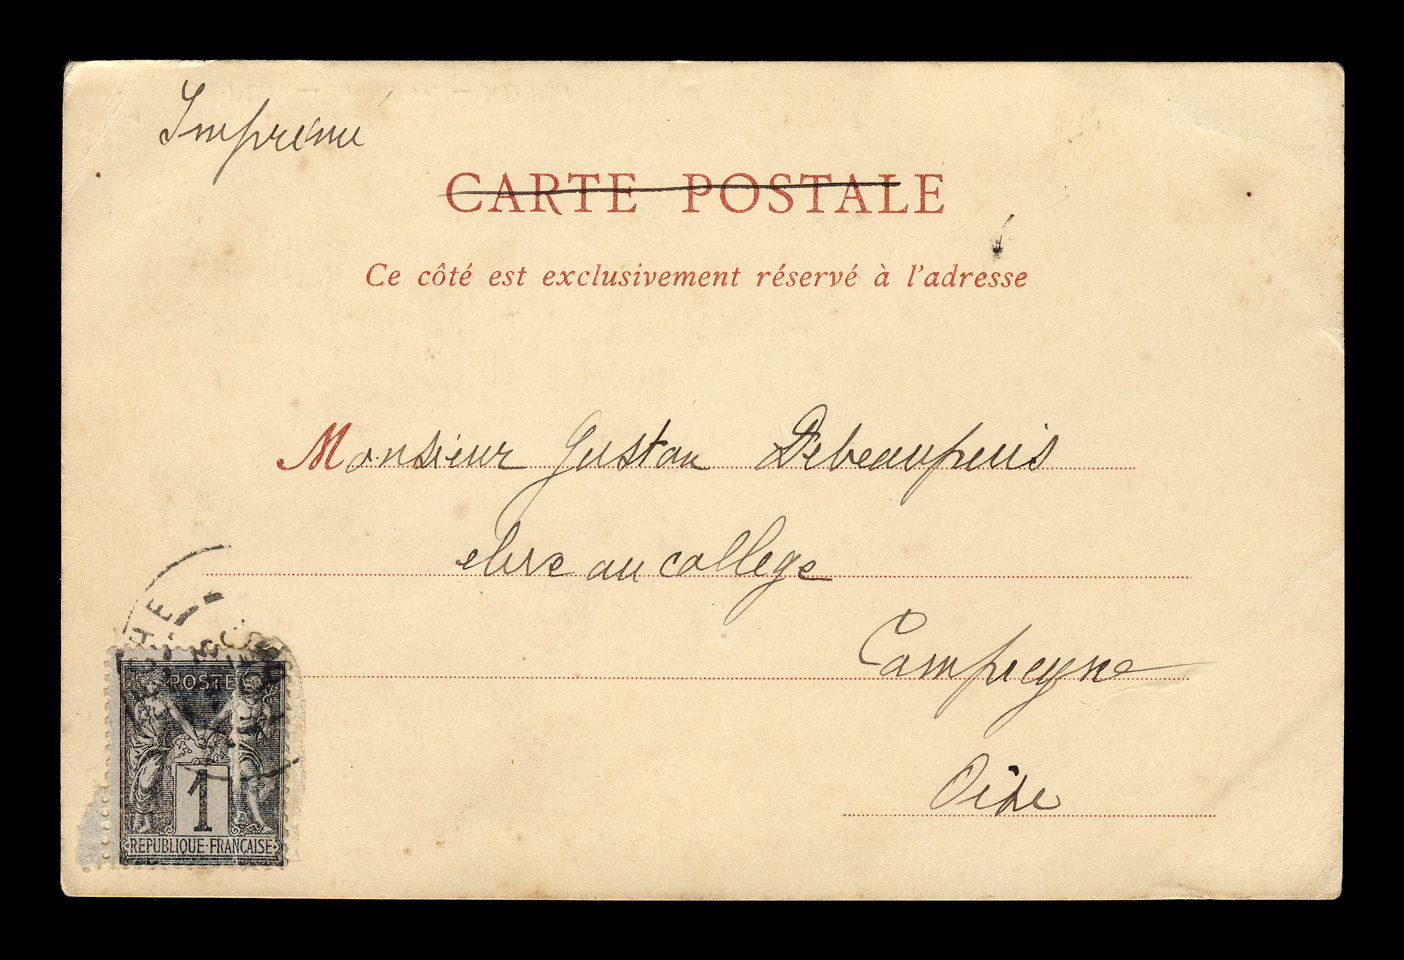 Imprimé
CARTE POSTALE
Ce côté est exclusivement réservé à l'adresse
Monsieur Gaston Debeaupuis
eleve au college
Compiegne
Oise
HE
POSTE
1
REPUBLIQUE·FRANÇAISE